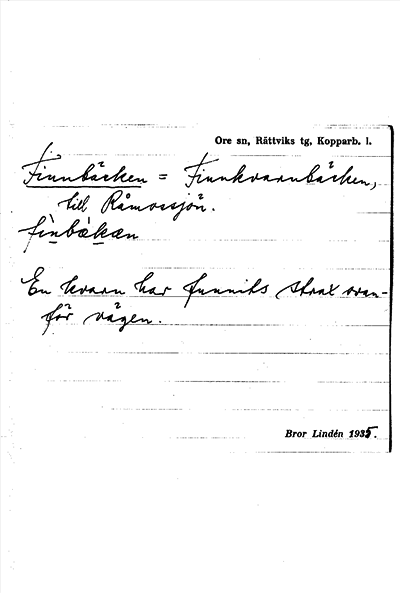 Ore sn, Rättviks tg, Kopparb. l.
Finnbäcken = Finnkvarnbäcken,
till Råmossjön.
fìnbækæn
En kvarn har funnits strax ovan-
för vägen.
Bror Lindén 1935.